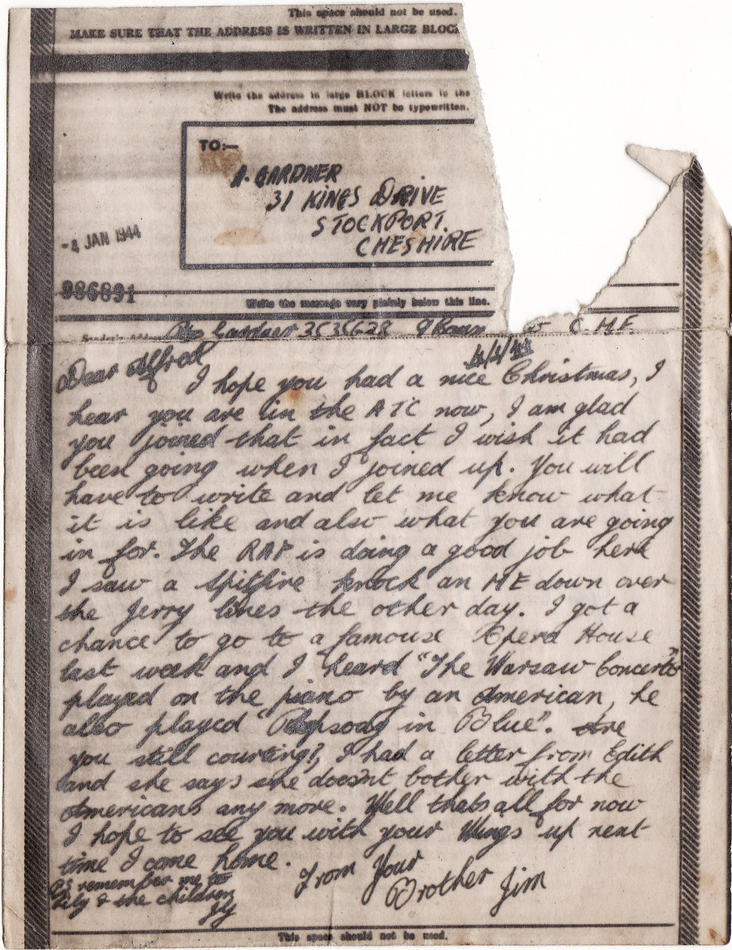 This space should not be used.
MAKE SURE THAT THE ADDRESS IS WRITTEN IN LARGE BLOC
Write the address in large BLOCK letters in the
The address must NOT be typewritten.
TO:—
A. GARDNER
31 KINGS DRIVE
STOCKPORT.
CHESHIRE
-4 JAN 1944
986891
Write the message very plainly below this line.
Gardner 3535628 C.M.F.
Dear Alfred
I hope you had a nice Christmas, I
hear you are in the ATC now, I am glad
you joined that in fact I wish it had
been going when I joined up. You will
have to write and let me know what
it is like and also what you are going
in for. The RAF is doing a good job here
I saw a Spitfire knock an ME down over
the Jerry lines the other day. I got a
chance to go to a famouse Opera House
last week and I heard "The Warsaw Concerto"
played on the piano by an American, he
also played "Rhapsody in Blue". Are
you still courting?, I had a letter from Edith
and she says she doesnt bother with the
Americans any more. Well thats all for now
I hope to see you with your Wings up next
time I come home.
From Your
Brother Jim
PS remember me to
Lily & the children
This space should not be used.